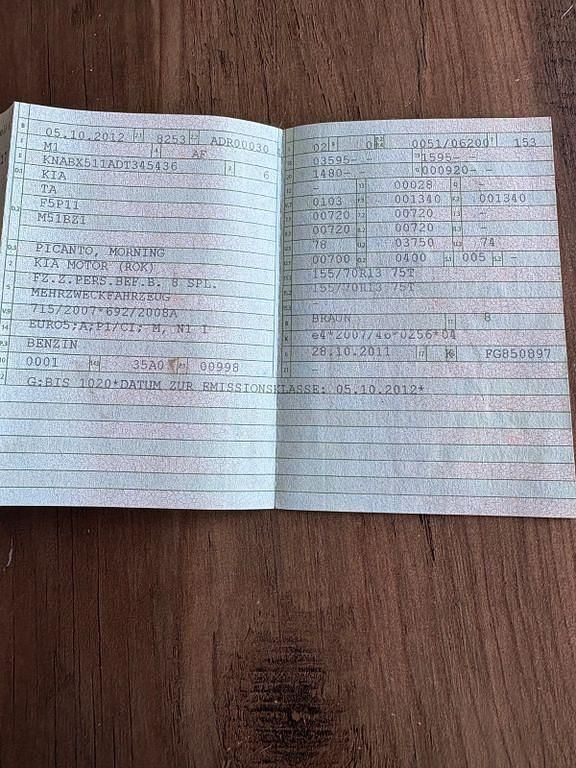 05.10.2012 8253 ADR00030
M1 AF
KNABX511ADT345436 6
KIA
TA
F5P11
M51BZ1
PICANTO, MORNING
KIA MOTOR (ROK)
FZ.Z.PERS.BEF.B. 8 SPL.
MEHRZWECKFAHRZEUG
715/2007*692/2008A
EURO5;A;PI/CI; M, N1 I
BENZIN
0001 35A0 00998
G:BIS 1020*DATUM ZUR EMISSIONSKLASSE: 05.10.2012*
02 0 0051/06200 153
03595- - 1595- -
1480- - 000920- -
- 00028 -
0103 001340 001340
00720 00720 -
00720 00720 -
78 03750 74
00700 0400 005 -
155/70R13 75T
155/70R13 75T
-
BRAUN 8
e4*2007/46*0256*04
28.10.2011 K FG850897